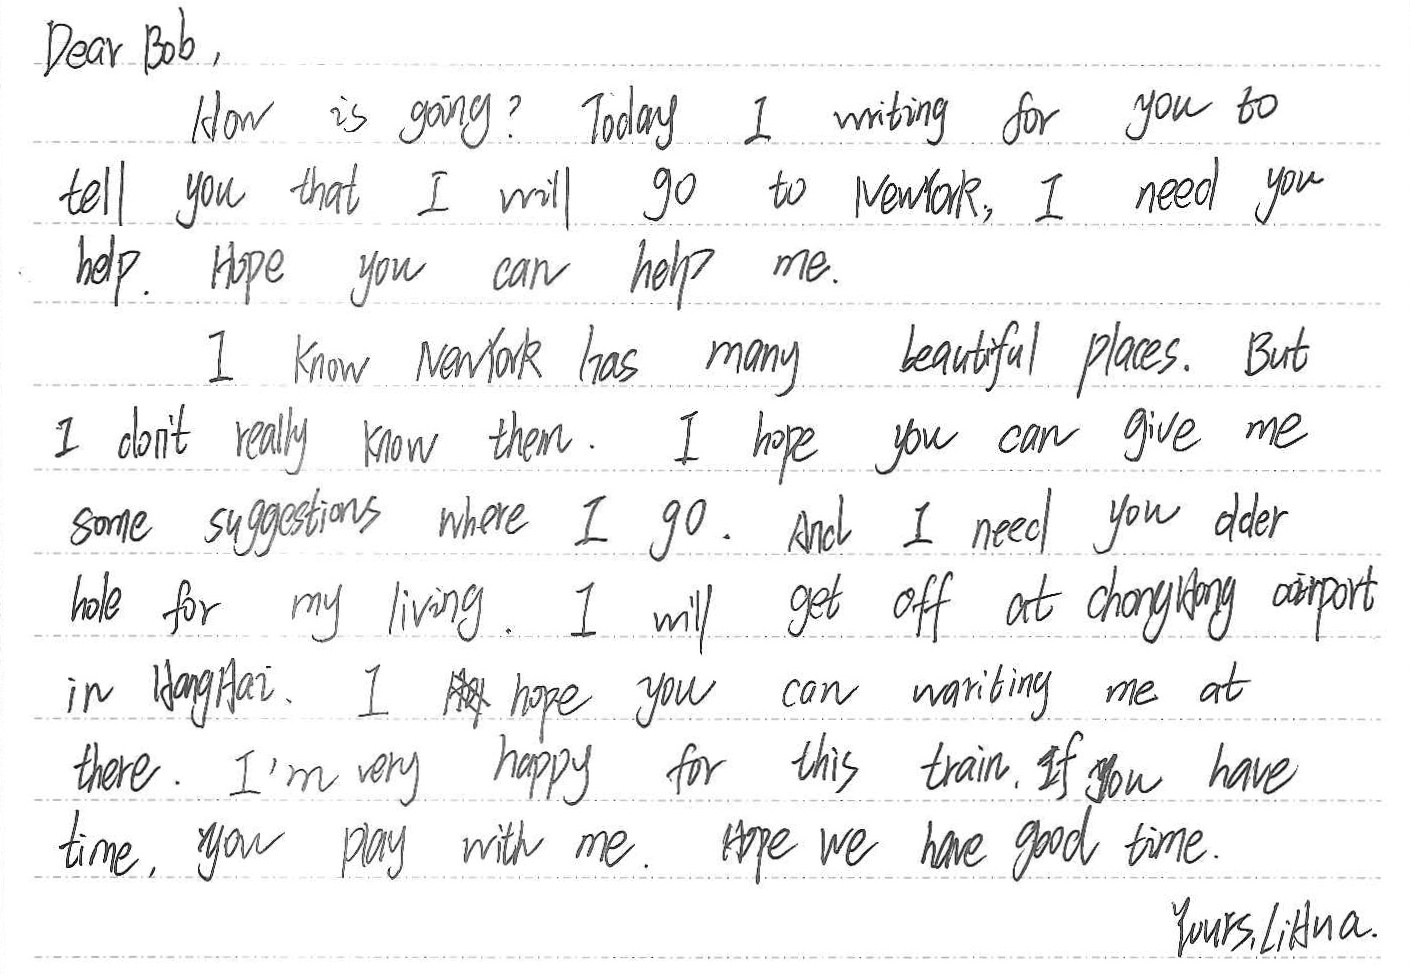 Dear Bob,
How is going? Today I writing for you to
tell you that I will go to NewYork, I need you
help. Hope you can help me.
I know NewYork has many beautiful places. But
I don't really know them. I hope you can give me
some suggestions where I go. And I need you dder
hole for my living. I will get off at chongHong airport
in HangHai. I hope you can wariting me at
there. I'm very happy for this train. If you have
time, you play with me. Hope we have good time.
Yours, LiHua.